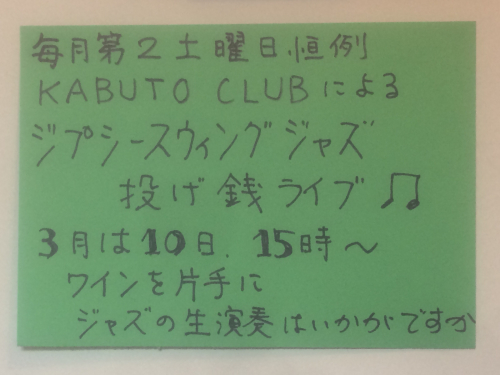 毎月第2土曜日恒例
KABUTO CLUBによる
ジプシースウィングジャズ
投げ銭ライブ♫
3月は10日、15時〜
ワインを片手に
ジャズの生演奏はいかがですか